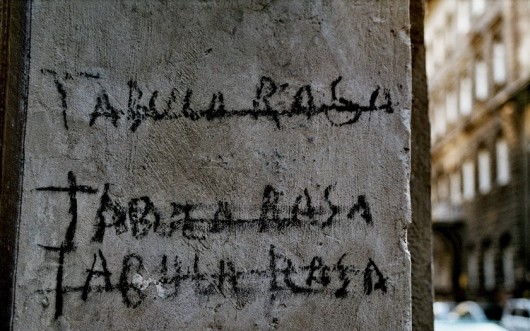 TABULA RASA
TABULA RASA
TABULA RASA